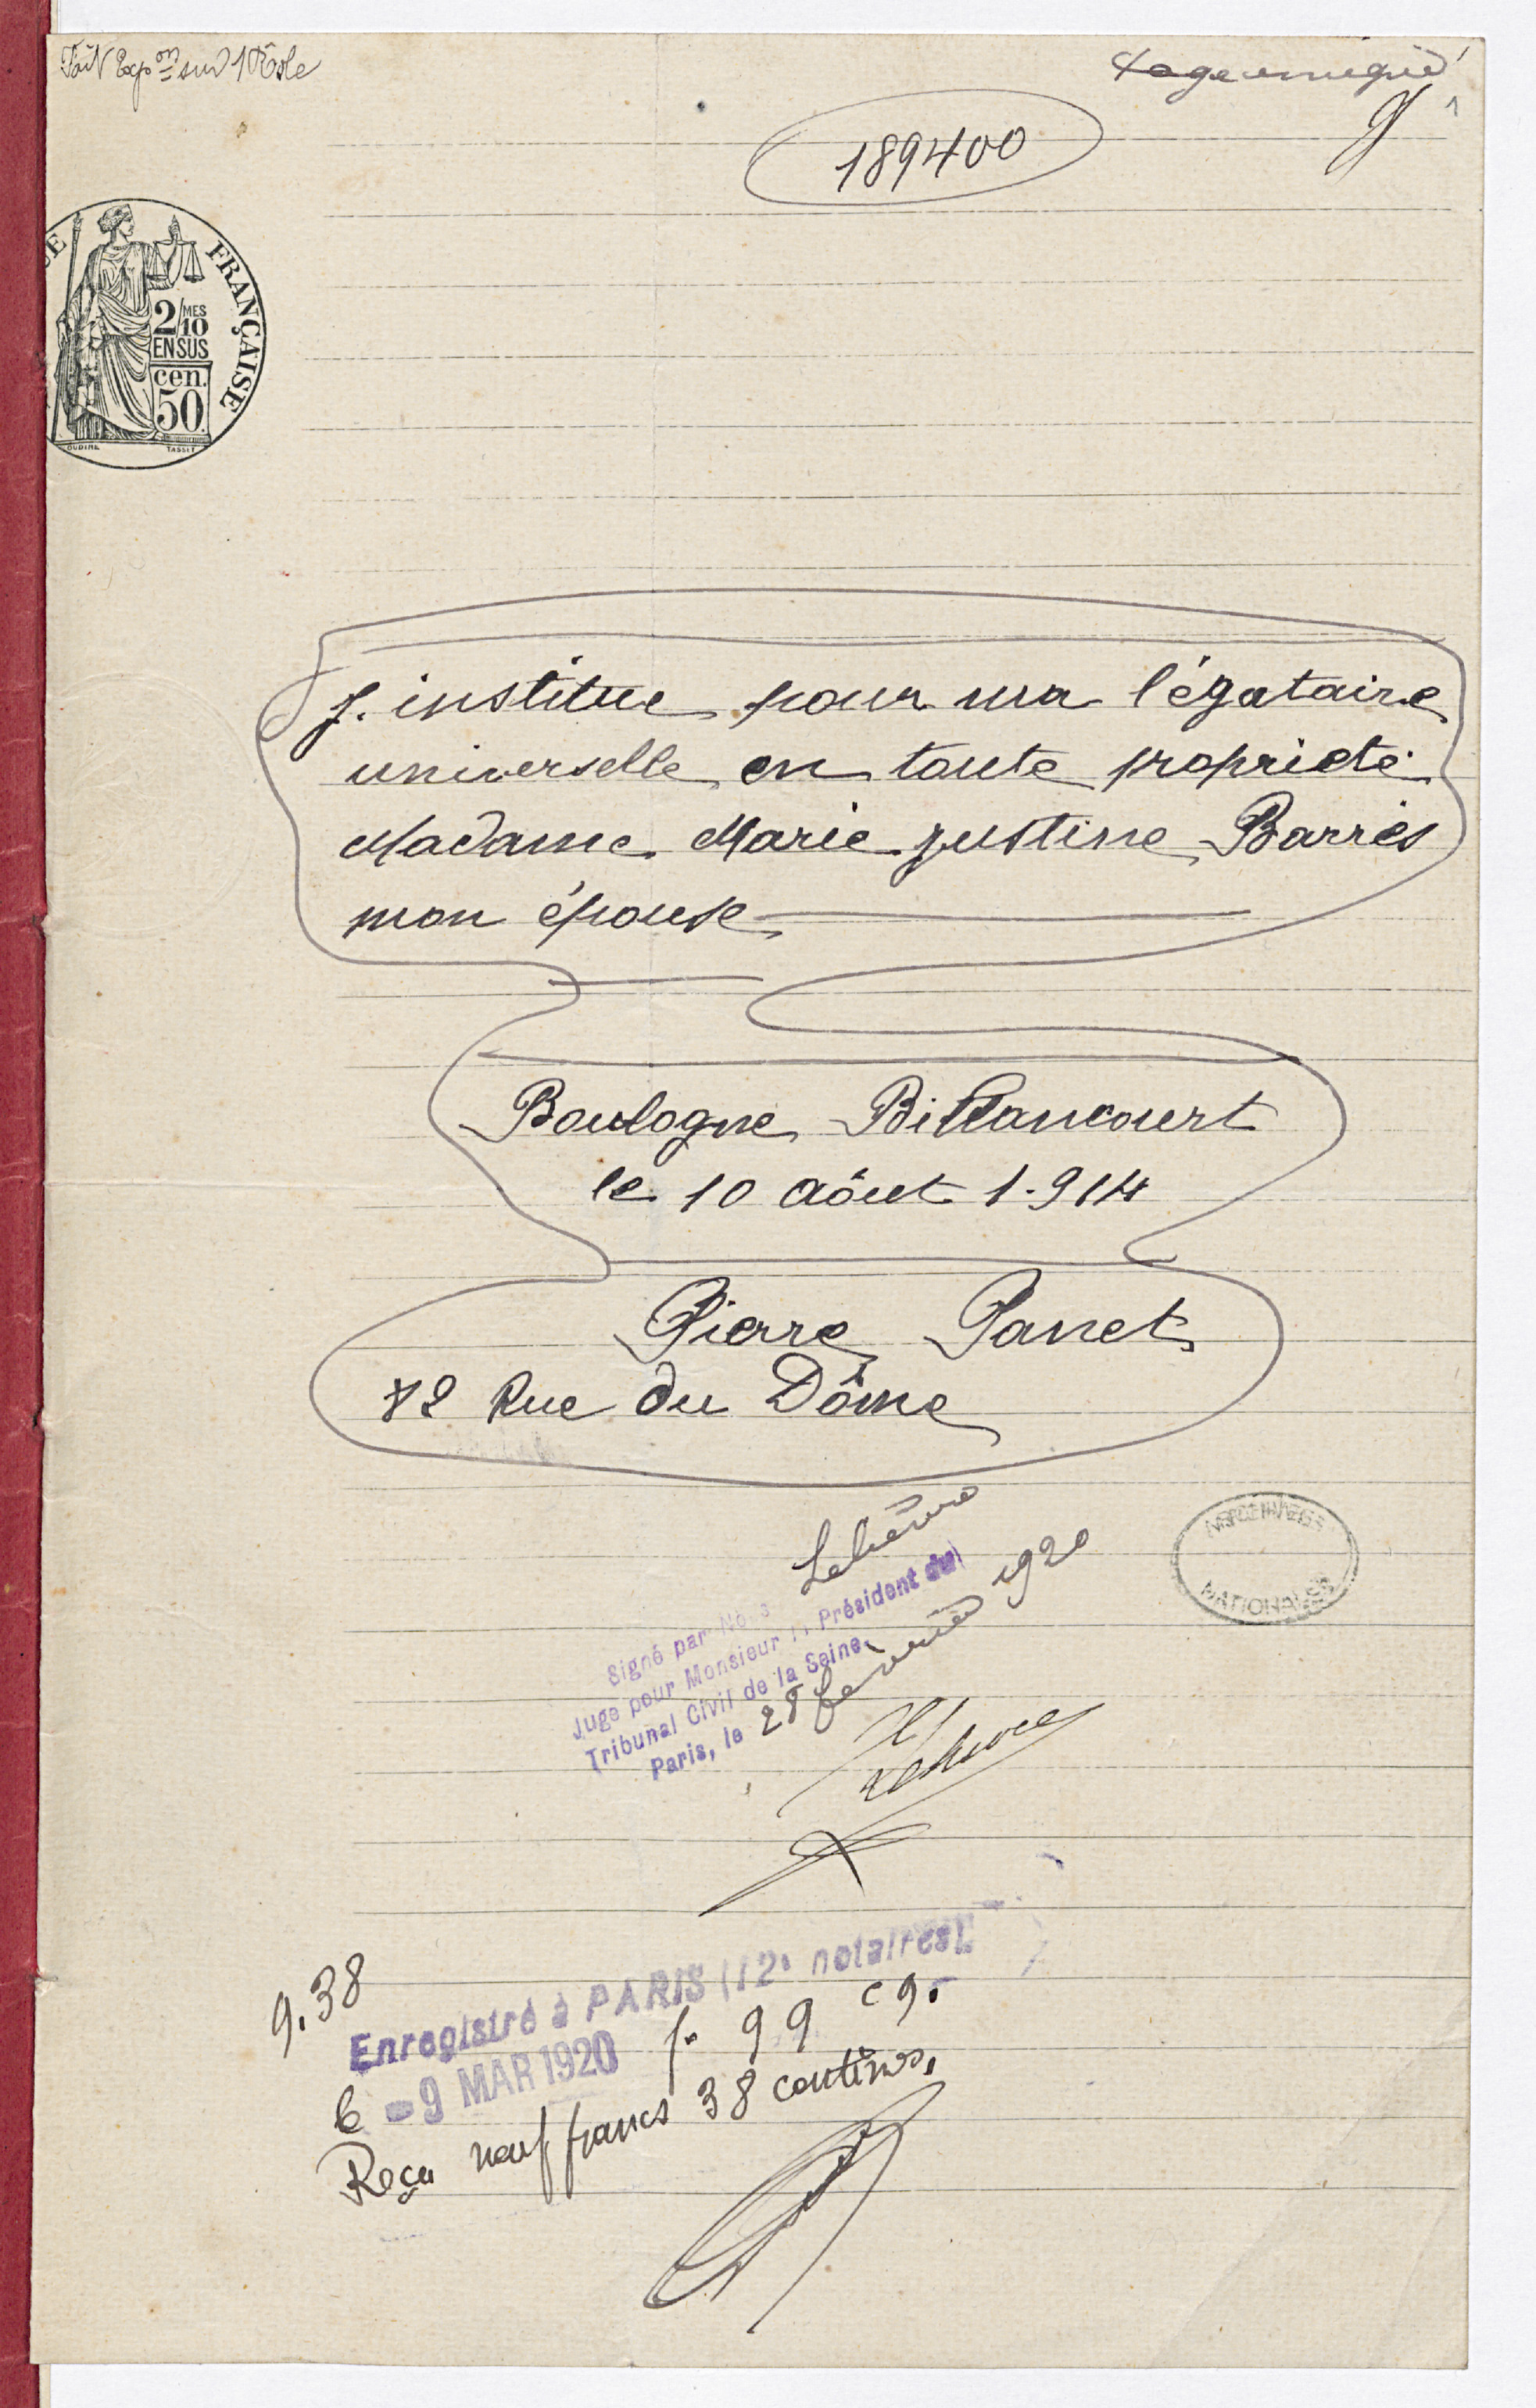 Fait Exp on sur 1 Rôle
Page unique
189400
FRANÇAISE
2/10 MES
EN SUS
cen.
50
OUDINE TASSET
j. institue pour ma légataire
universelle en toute proprieté
Madame Marie justine Barrès
mon épouse
Boulogne Billancourt
le 10 aôut 1.914
Pierre Panet
12 Rue du Dôme
Signé par Nous
Juge pour Monsieur le Président du
Tribunal Civil de la Seine,
Paris, le 28 février 1920
ARCHIVES
NATIONALES
9.38
Enregistré à PARIS (12e notaires)
le -9 MAR 1920 f. 99 c 9.
Reçu neuf francs 38 centimes.